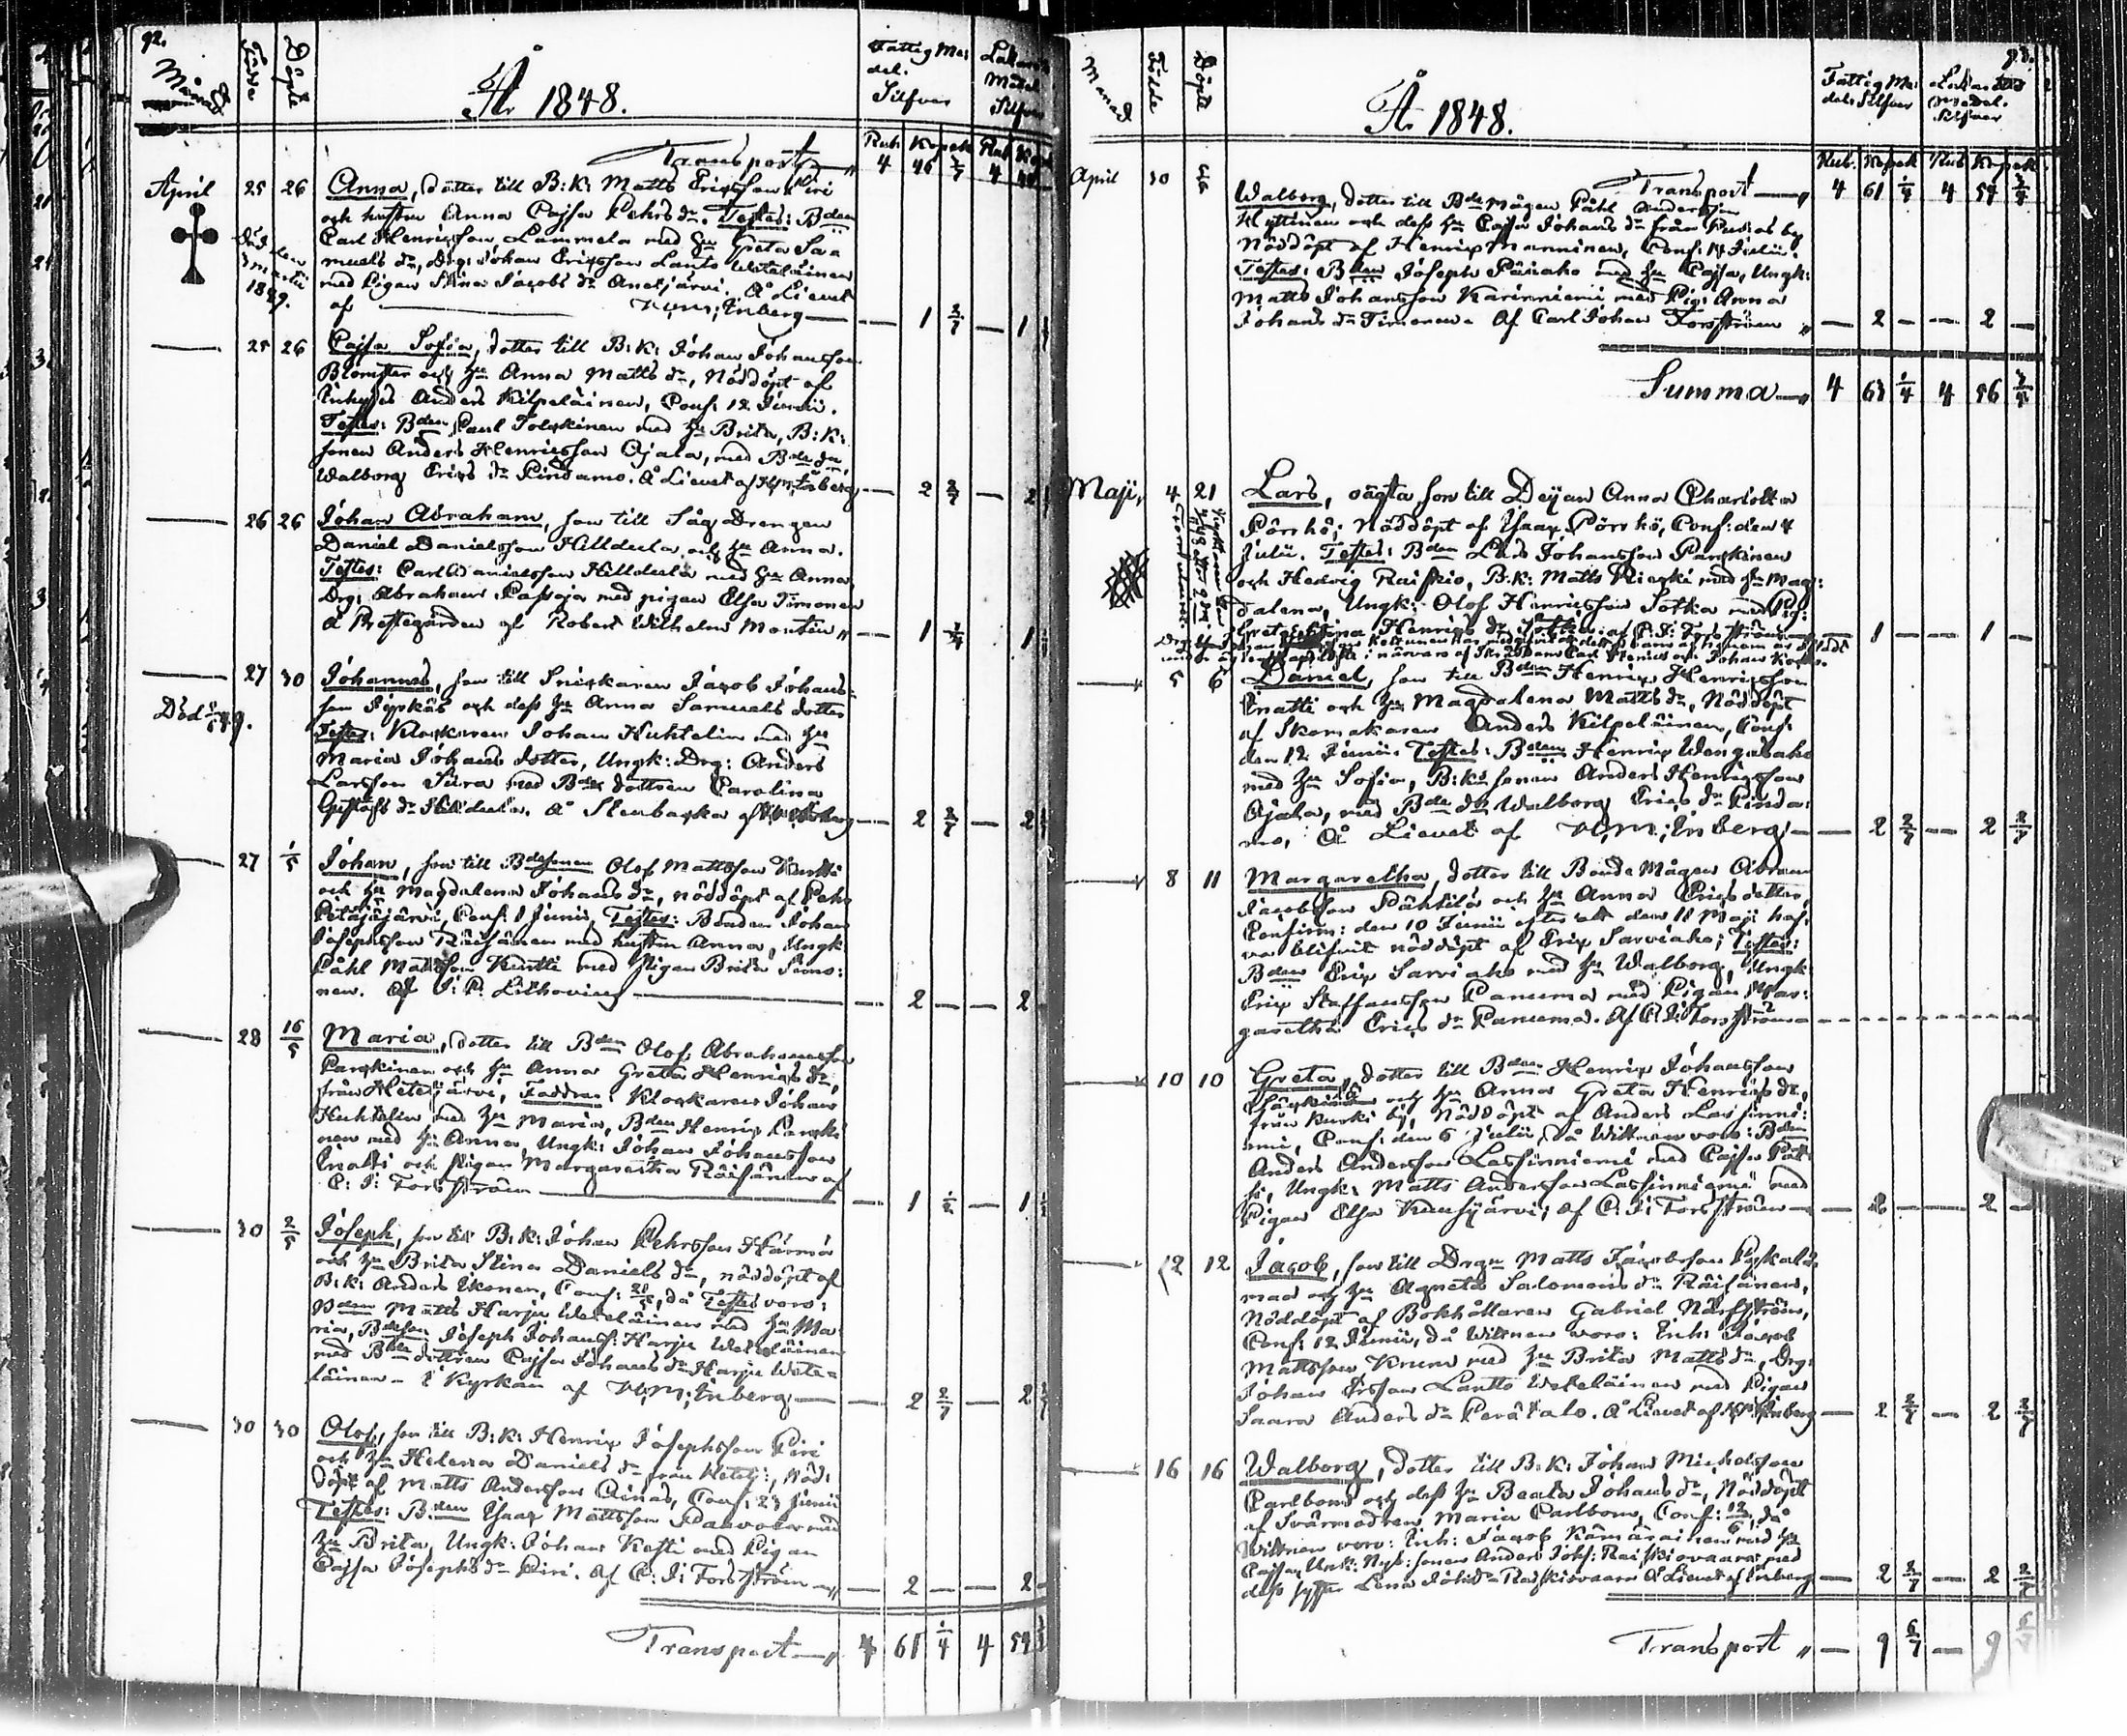 92.
Månad
Födde
Döpte
År 1848.
Fattig Me:
del.
Silfver
Lakar
Medel
Silfver
Rub Kopek Rub Kop
Transport 4 46 4
April 25 26 Anna, dotter till B:k: Matts Ericsson Piri
och hustru Anna Cajsa Pehrs dr. Testes: Bden
Carl Henricsson Lammela med hu Greta Sa=
muels dr, Drg: Johan Ericsson Lanto Wetelainen
med Pigan Stina Jacobs dr Anetjärvi. Å Lievet
af H:M: Enberg — 1 2/7 — 1
Död den
martii
1849.
25 26 Cajsa Sofia, dotter till B:k: Johan Johansson
Blomster och hu Anna Matts dr, Nöddöpt af
Inhyses Anders Kilpeläinen, Conf: 12 Junii.
Testes: Bden Paul Tolckinen med hu Brita, B:k:
sonen Anders Henricsson Ojala, med Bde dr
Walborg Erics dr Pindamo. Å Lievet af H:M: Enberg — 2 2/7 — 2
26 26 Johan Abraham, son till Såg Drengen
Daniel Danielsson Hilldula och hu Anna.
Testes: Carl Danielsson Hilldula med hu Anna
Drg: Abraham Passoja med pigan Elsa Timonen
å Prestegården af Robert Wilhelm Montin — 1 1/4 — 1
27 30 Johannes, son till Snickaren Jacob Johans=
son Pyykäs och dess hu Anna Samuels dotter
Testes: Klockaren Johan Huhtelin med hu
Maria Johans dotter, Ungk: Drg: Anders
Larsson Siira med Bde dottren Carolina
Gustafs dr Hilldula. Å Stenbacka af H:M: Enberg — 2 2/7 — 2
Död
27 1/5 Johan, son till Bdesonen Olof Mattsson Kurtti
och hu Magdalena Johans dr, nöddöpt af Pehr
Pitäjäjärvi, Conf: 1 Junii, Testes: Bonden Johan
Josephsson Räisänen med hustru Anna, Ungk
Påhl Mattsson Kurtti med Pigan Brita Simo:
nen. Af J: P: Lithovius — 2 — — 2
28 16/5 Maria, dotter till Bden Olof Abrahamsson
Parckinen och hu Anna Greta Henrics dr,
från Hetejärvi, Faddrar: Klockaren Johan
Huhtelin med hu Maria, Bden Henric Parcki
nen med hu Anna, Ungk: Johan Johansson
Inatti och pigan Margaretha Räisänen af
C: J: Forsström — 1 1/2 — 1
30 2/5 Joseph, son till B:k: Johan Pehrsson Härmä
och hu Brita Stina Daniels dr, nöddöpt af
B:k: Anders Ikonen, Conf: 20/5, då Testes voro:
Bden Matts Harju Weteläinen med hu Ma=
ria, Bdeson Joseph Johans: Harju Weteläinen
med Bde dottren Cajsa Johans dr Harju Wete=
läinen – i Kyrkan af H:M: Enberg — 2 2/7 — 2
30 30 Olof, son till B:k: Henric Josephsson Piri
och hu Helena Daniels dr från Hetej:, Nöd:
döpt af Matts Andersson Ainas, Conf: 23 Junii
Testes: Bden Isaac Mattsson Paavola med
hu Brita, Ungk: Johan Kesti med Pigan
Cajsa Josephs dr Piri. Af C: J: Forsström — 2 — — 2
Transport 4 61 1/4 4 54
Månad
Födde
Döpte
År 1848.
Fattig Me:
del: Silfver
Medel.
Silfver
Rub. Kopek Rub Kopek
Transport 4 61 1/4 4 54
April 30 Walborg, dotter till Bde Mågen Påhl Andersson
Hyttinen och dess hu Cajsa Johans dr från Purnos by
Nöddöpt af Henric Manninen, Conf: Julii.
Testes: Bden Joseph Säriaho med hu Cajsa, Ungk:
Matts Johansson Karinniemi med Pig: Anna
Johans dr Timonen. Af Carl Johan Forsström — 2 — — 2 —
Summa 4 63 1/4 4 56
Maji, 4 21 Lars, oägta son till Deijan Anna Charlotta
Pörrhö; Nöddöpt af Isaac Pörrhö, Conf: den 8
Julii. Testes: Bden Lars Johansson Parckinen
och Hedvig Raiskio, B:k: Matts Riecki med hu Mag:
dalena, Ungk: Olof Henricsson Sotka med Pig:
Greta Stina Henrics dr Sotka af C: J: Forsström — 1 — — 1 —
5 6 Daniel, son till Bden Henric Henricsson
Inatti och hu Magdalena Matts dr, Nöddöpt
af Skomakaren Anders Kilpeläinen, Conf:
den 12 Junii. Testes: Bden Henric Wengasaho
med hu Sofia, B:ks sonen Anders Henricsson
Ojala, med Bde dr Walborg Erics dr Pinda:
mo, Å Lievet af H:M: Enberg — 2 2/7 — 2 2/7
8 11 Margaretha, dotter till Bonde Mågen Abram
Jacobsson Pähtilä och hu Anna Erics dotter,
Confirm: den 10 Junii efter att den 11 Maji haf:
va blifvit nöddöpt af Eric Sarviaho; Testes:
Bden Eric Sarviaho med hu Walborg, Ungk
Eric Staffansson Panuma med Pigan Mar:
garetha Erics dr Panuma. Af C: J: Forsström
10 10 Greta, dotter till Bden Henric Johansson
och hu Anna Greta Henrics dr,
från Kurki by, Nöddöpt af Anders Lassinnie:
mi, Conf: den 6 Julii, då Wittnen voro: Bden
Anders Andersson Lassinniemi med Cajsa Pät
si, Ungk: Matts Andersson Lassinniemi med
Pigan Elsa Kuusijärvi, af C: J: Forsström — 2 — — 2 —
12 12 Jacob, son till Drgn Matts Jacobsson Pyykalä
maa och hu Agneta Salomons dr Räisänen,
Nöddöpt af Bokhållaren Gabriel Norsström,
Conf: 12 Junii, då Wittnen voro: Inh: Jacob
Mattsson Krum med hu Brita Matts dr, Drg:
Johan Ersson Lantto Weteläinen med Pigan
Saara Anders dr Perätalo. Å Lievet af H:M: Enberg — 2 2/7 — 2 2/7
16 16 Walborg, dotter till B:k: Johan Michelsson
Carlbom och dess hu Beata Johans dr, Nöddöpt
af Svärmodren Maria Carlbom, Conf: 12/6, då
Wittnen voro: Inh: Jacob Kämäräinen med hu
Cajsa, Ungk: Nyb: sonen Anders Johs: Raiskiovaara med
dess syster Lena Johs dr Raiskiovaara Å Lievet af Enberg — 2 2/7 — 2 2/7
Transport — 9 6/7 — 9